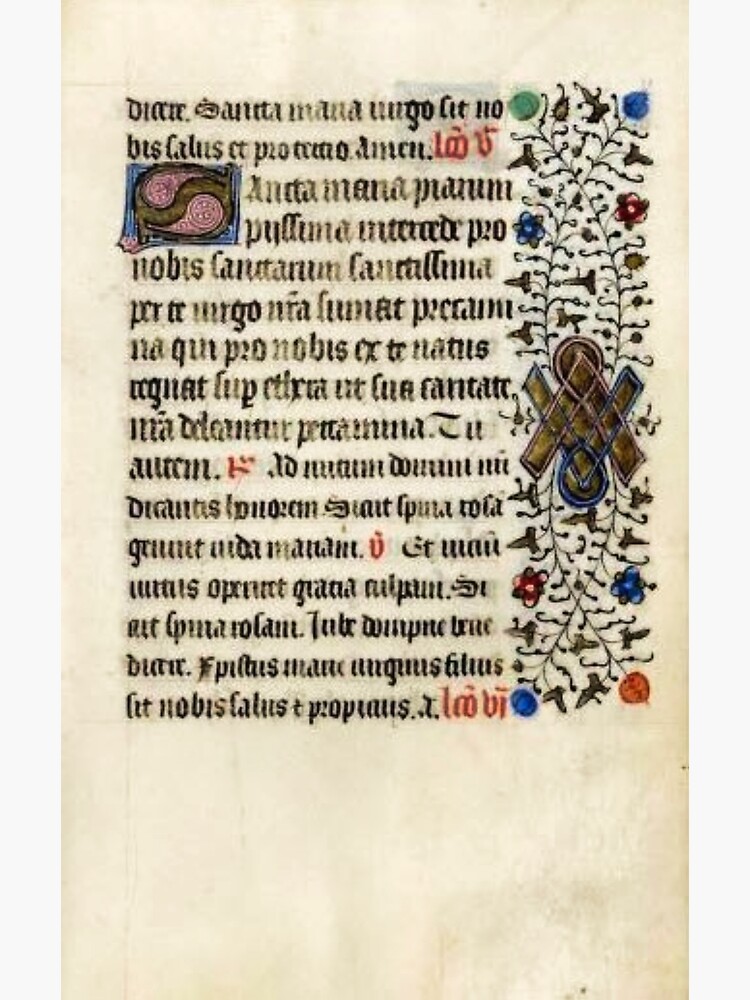 dicere. Sancta maria uirgo sit no
bis salus et protectio. Amen. lcō v̄
Sancta maria piarum
piissima intercede pro
nobis sanctarum sanctissima
per te uirgo nr̄a sumat precami
na qui pro nobis ex te natus
regnat suꝑ ethera ut sua caritate
nr̄a deleantur peccamina. Tu
autem. R̄ Ad nutum domini nr̄i
dicantis honorem Sicut spina rosa
genuit iuda mariam. v̄ Et uiciū
uirtus operiret gracia culpam. Si
cut spina rosam. Iube dompne bene
dicere. Xpistus marie unguis filius
sit nobis salus ⁊ propicius. A. lcō vı̄